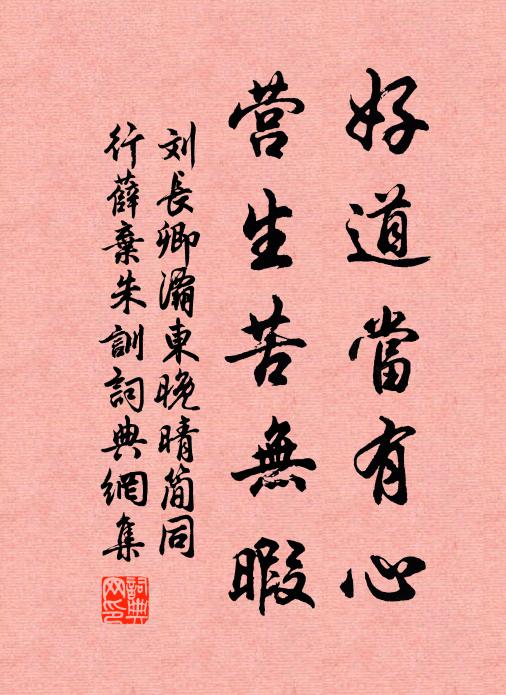 好道當有心
营生苦無暇
刘長卿灞東晚晴简同
行薛棄朱訓詞典網集
詞典网印